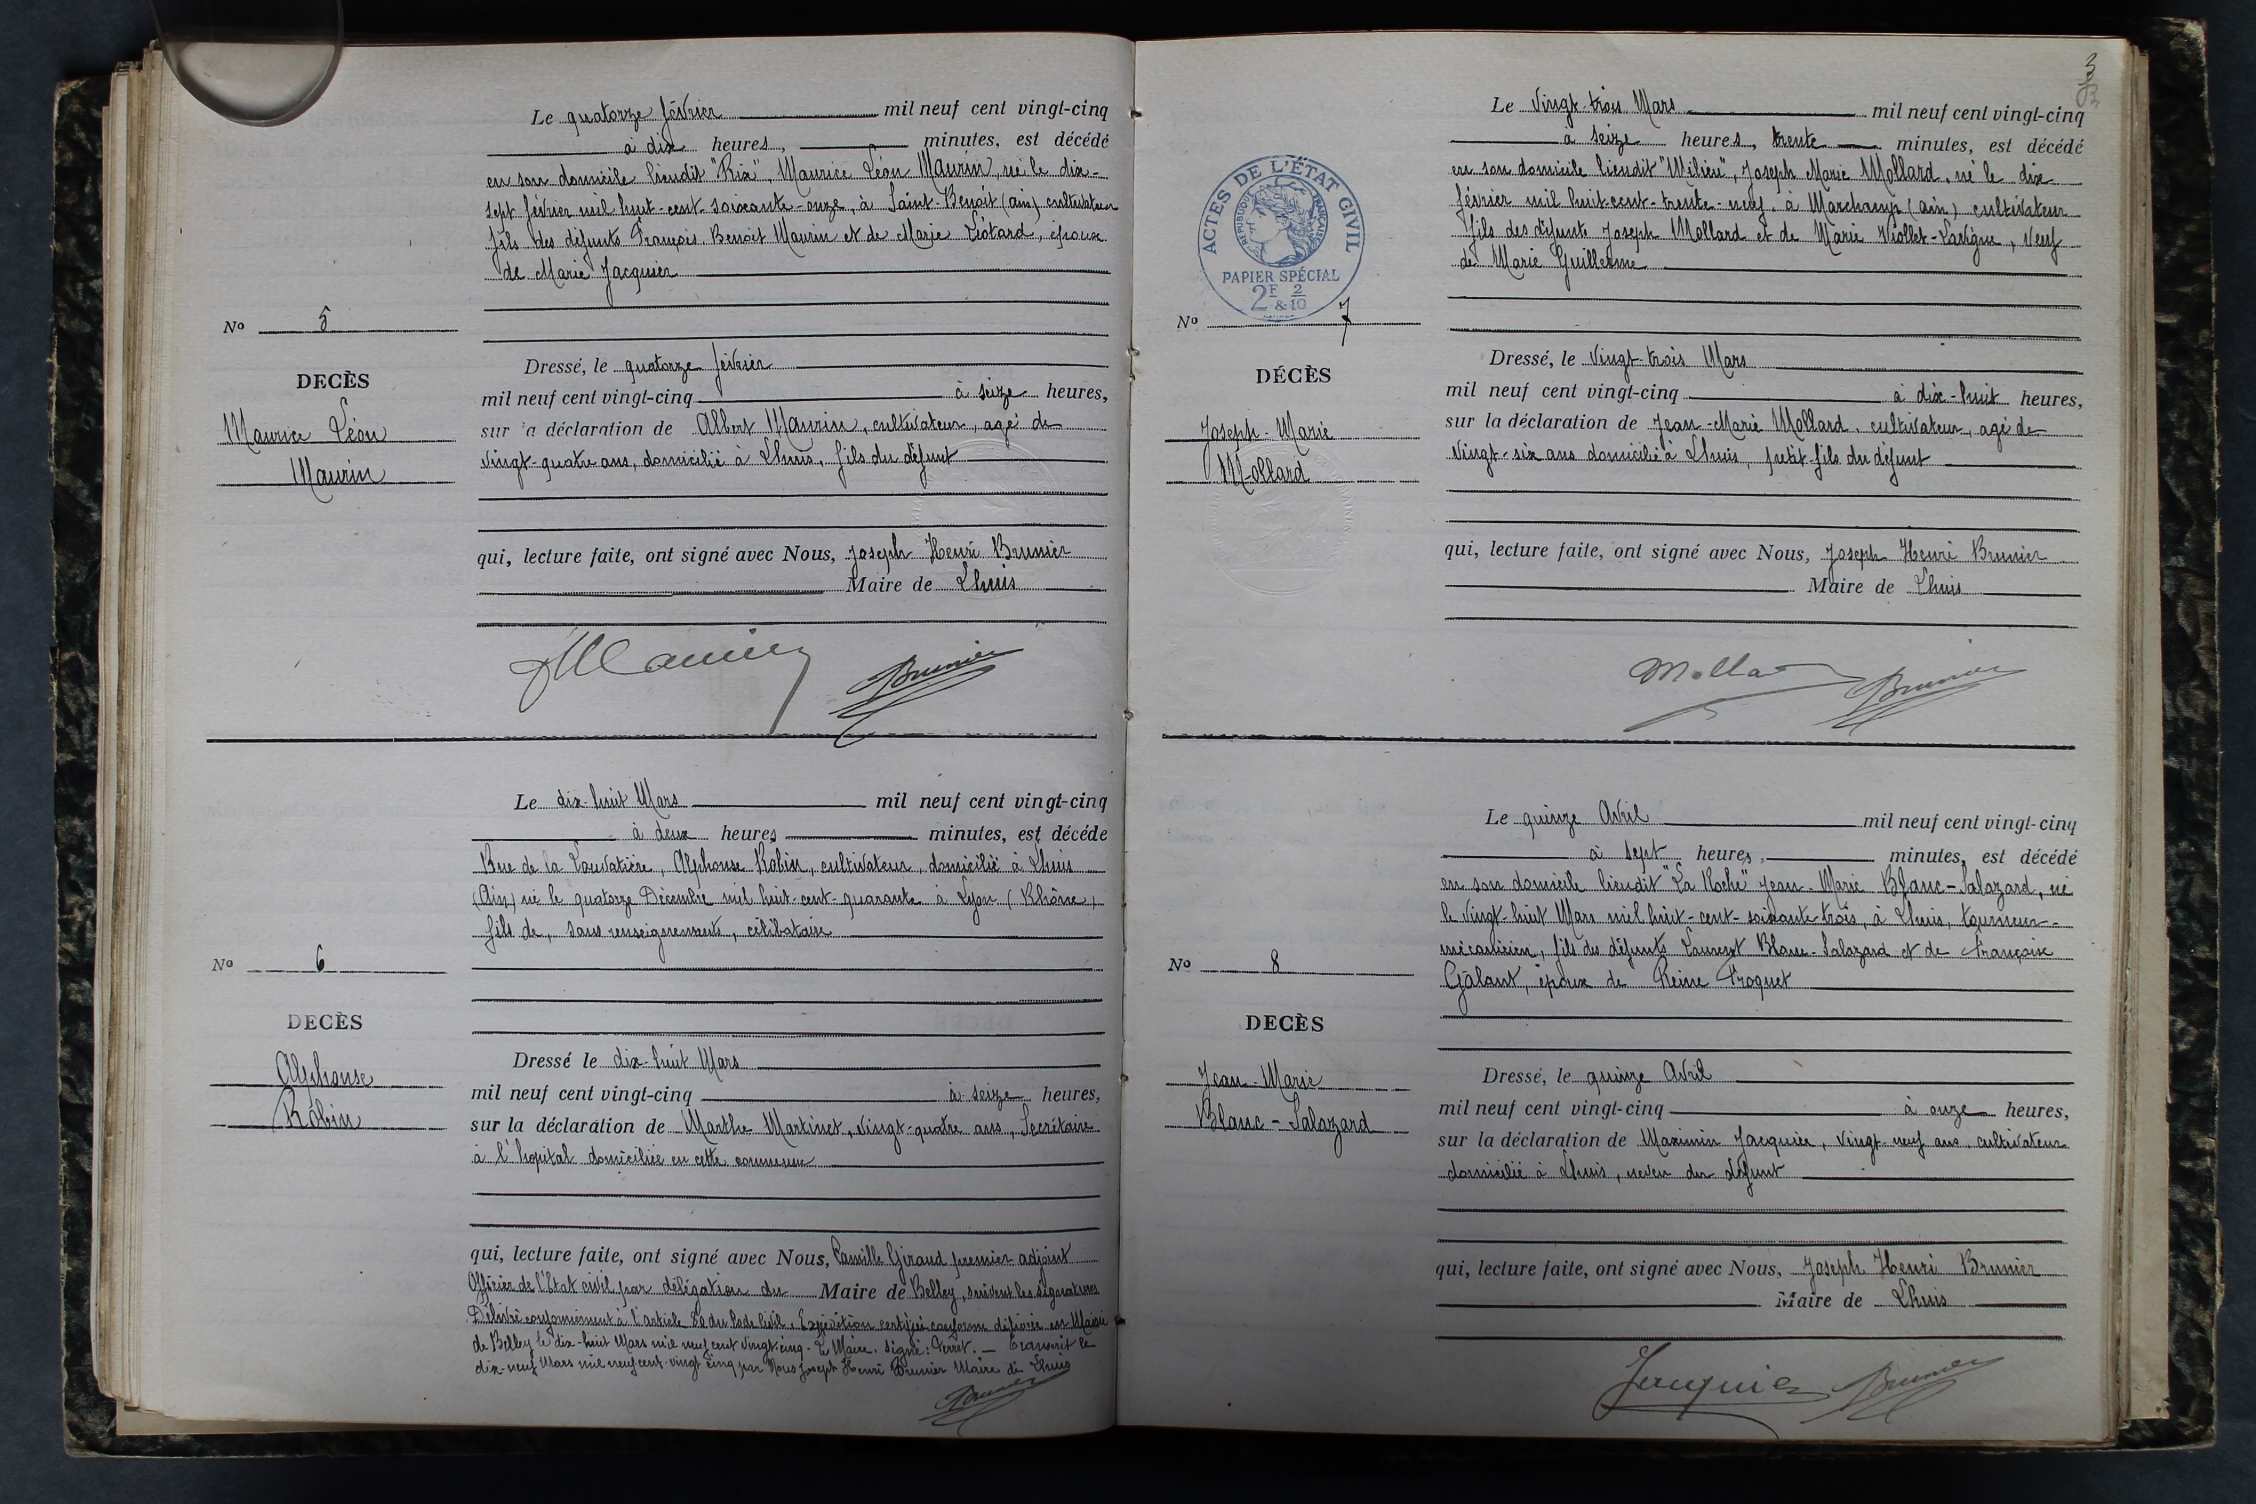 Le quatorze février mil neuf cent vingt-cinq
à dix heures, minutes, est décédé
en son domicile lieudit "Rix", Maurice Léon Maurin né le dix-
sept février mil huit-cent-soixante-onze, à Saint-Benoit (ain) cultivateur
fils des défunts François Benoit Maurin et de Marie Liotard, époux
de Marie Jacquier
No 5
DECÈS
Maurice Léon
Maurin
Dressé, le quatorze février
mil neuf cent vingt-cinq à seize heures,
sur a déclaration de Albert Maurin, cultivateur, agé de
vingt-quatre ans, domicilié à Lhuis, fils du défunt
qui, lecture faite, ont signé avec Nous, Joseph Henri Brunier
Maire de Lhuis
Maurin
Brunier
Le dix-huit Mars mil neuf cent vingt-cinq
à deux heures minutes, est décédé
Rue de la Louvatière, Alphonse Robin, cultivateur, domicilié à Lhuis
(Ain) né le quatorze Décembre mil huit-cent-quarante à Lyon (Rhône)
fils de, sans renseignements, célibataire
No 6
DECÈS
Alphonse
Robin
Dressé le dix-huit Mars
mil neuf cent vingt-cinq à seize heures,
sur la déclaration de Marthe Martinet, vingt-quatre ans, Secrétaire
à l'hopital domiciliée en cette commune
qui, lecture faite, ont signé avec Nous, Camille Giraud premier adjoint
Officier de l'Etat civil par délégation du Maire de Belley, suivent les signatures
Délivré conformément à l'article 80 du Code Civil. Expédition certifiée conforme délivrée en Mairie
de Belley le dix-huit Mars mil neuf cent vingt-cinq. Le Maire. signé: Perret. — Transcrit le
dix-neuf Mars mil neuf cent vingt cinq par Nous Joseph Henri Brunier Maire de Lhuis
Brunier
3
ACTES DE L'ÉTAT CIVIL
RÉPUBLIQUE FRANÇAISE
PAPIER SPÉCIAL
2F & 2/10
Le Vingt-trois Mars mil neuf cent vingt-cinq
à seize heures, trente minutes, est décédé
en son domicile lieudit "Milieu", Joseph Marie Mollard, né le dix
février mil huit-cent-trente-neuf, à Marchamp (ain) cultivateur
fils des défunts Joseph Mollard et de Marie Viollet-Lavigne, Veuf
de Marie Guillerme
No 7
DÉCÈS
Joseph-Marie
Mollard
Dressé, le Vingt-trois Mars
mil neuf cent vingt-cinq à dix-huit heures,
sur la déclaration de Jean-Marie Mollard, cultivateur, agé de
Vingt-six ans domicilié à Lhuis, petit-fils du défunt
qui, lecture faite, ont signé avec Nous, Joseph Henri Brunier
Maire de Lhuis
Mollard
Brunier
Le quinze Avril mil neuf cent vingt-cinq
à sept heures, minutes, est décédé
en son domicile lieudit "La Roche" Jean-Marie Blanc-Salazard, né
le Vingt-huit Mars mil huit-cent-soixante-trois, à Lhuis, tourneur-
mécanicien, fils des défunts Laurent Blanc-Salazard et de Françoise
Galant, époux de Reine Froquet
No 8
DECÈS
Jean-Marie
Blanc-Salazard
Dressé, le quinze Avril
mil neuf cent vingt-cinq à onze heures,
sur la déclaration de Maximin Jacquier, Vingt-neuf ans cultivateur
domicilié à Lhuis, neveu du défunt
qui, lecture faite, ont signé avec Nous, Joseph Henri Brunier
Maire de Lhuis
Jacquier
Brunier